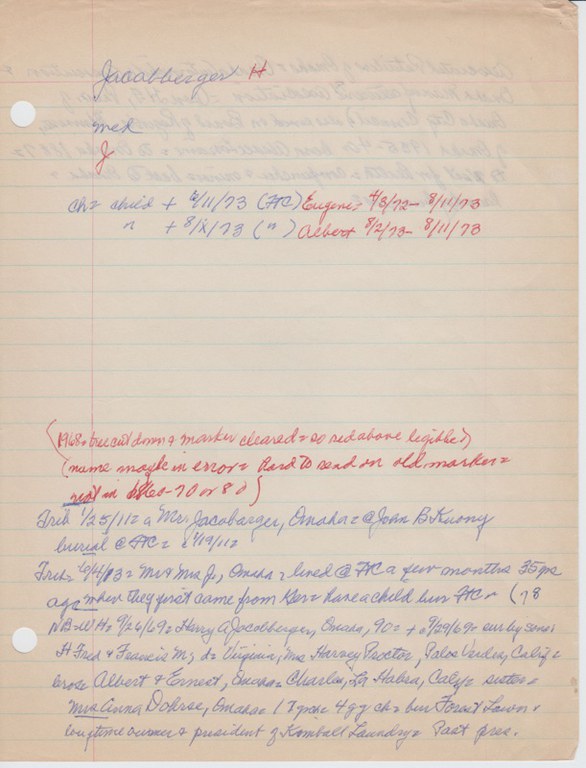 Jacobberger H
mek
J
ch = child + 8/11/73 (FtC) Eugene = 4/3/72 - 8/11/73
" + 8/x/73 (") Albert 8/2/73 - 8/11/73
(1968 = tree cut down + marker cleared = so red above legible)
(name maybe in error = Hard to read on old marker =
not in 1860-70 or 80)
Trib 1/25/11 = a Mr. Jacobarger, Omaha = @ John B Kuony
burial @ FtC = 1/19/11 =
Trib = 6/4/03 = Mr & Mrs J, Omaha = lived @ FtC a few months 35 yrs
ago when they first came from = Have a child bur FtC = (78
NB = WH = 9/26/69 = Harry A Jacobberger, Omaha, 90 = + 9/29/69 = sur by sons =
H Fred & Francis M; d = Virginia, Mrs Harvey Proctor, Palos Verdes, Calif =
bros = Albert & Ernest, Omaha = Charles, La Habra, Calif = sister =
Mrs Anna Dohrse, Omaha = 17 gch = 4 g g ch = bur Forest Lawn =
longtime owner & president of Kimball Laundry = Past pres.